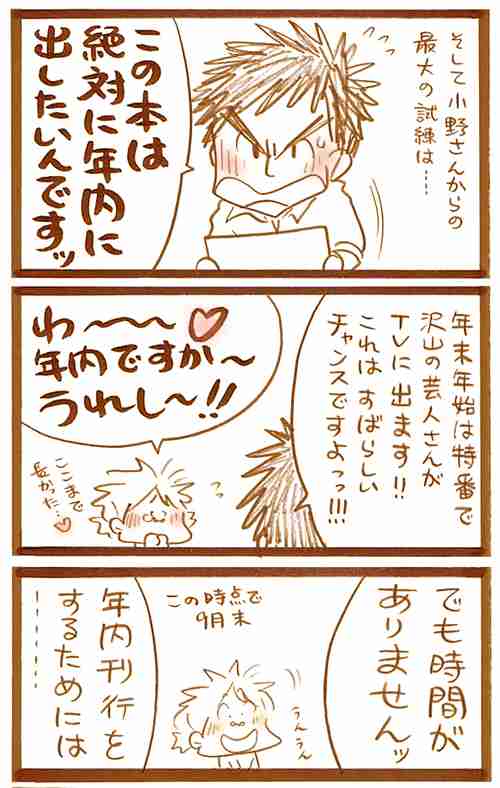 そして小野さんからの
最大の試練は……
この本は
絶対に年内に
出したいんですッ
年末年始は特番で
沢山の芸人さんが
TVに出ます!!
これは すばらしい
チャンスですよっっ!!!
わ〜〜〜♡
年内ですか〜
うれし〜!!
ここまで
長かった…♡
でも時間が
ありませんッ
この時点で
9月末
うんうん
年内刊行を
するためには
………